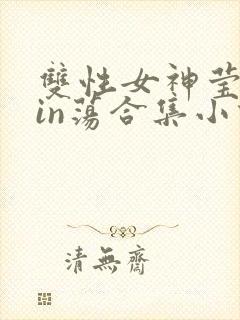 雙性女神莹
in蕩合集小
清無齋